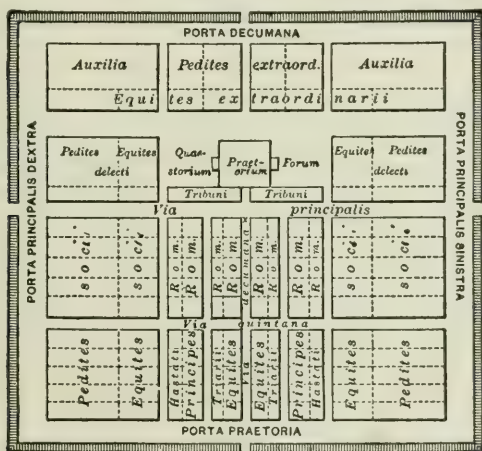 PORTA DECUMANA
Auxilia Pedites extraord. Auxilia
Equites extraordinarii
PORTA PRINCIPALIS DEXTRA
PORTA PRINCIPALIS SINISTRA
Pedites Equites
delecti
Quae-
storium
Praet-
orium
Forum
Equites Pedites
delecti
Tribuni Tribuni
Via principalis
socii socii Rom. Rom. Rom. Rom. Rom. Rom. Rom. Rom. socii socii
Via decumana
Via quintana
Pedites Equites Hastati Principes Triarii Equites Equites Triarii Principes Hastati Equites Pedites
PORTA PRAETORIA